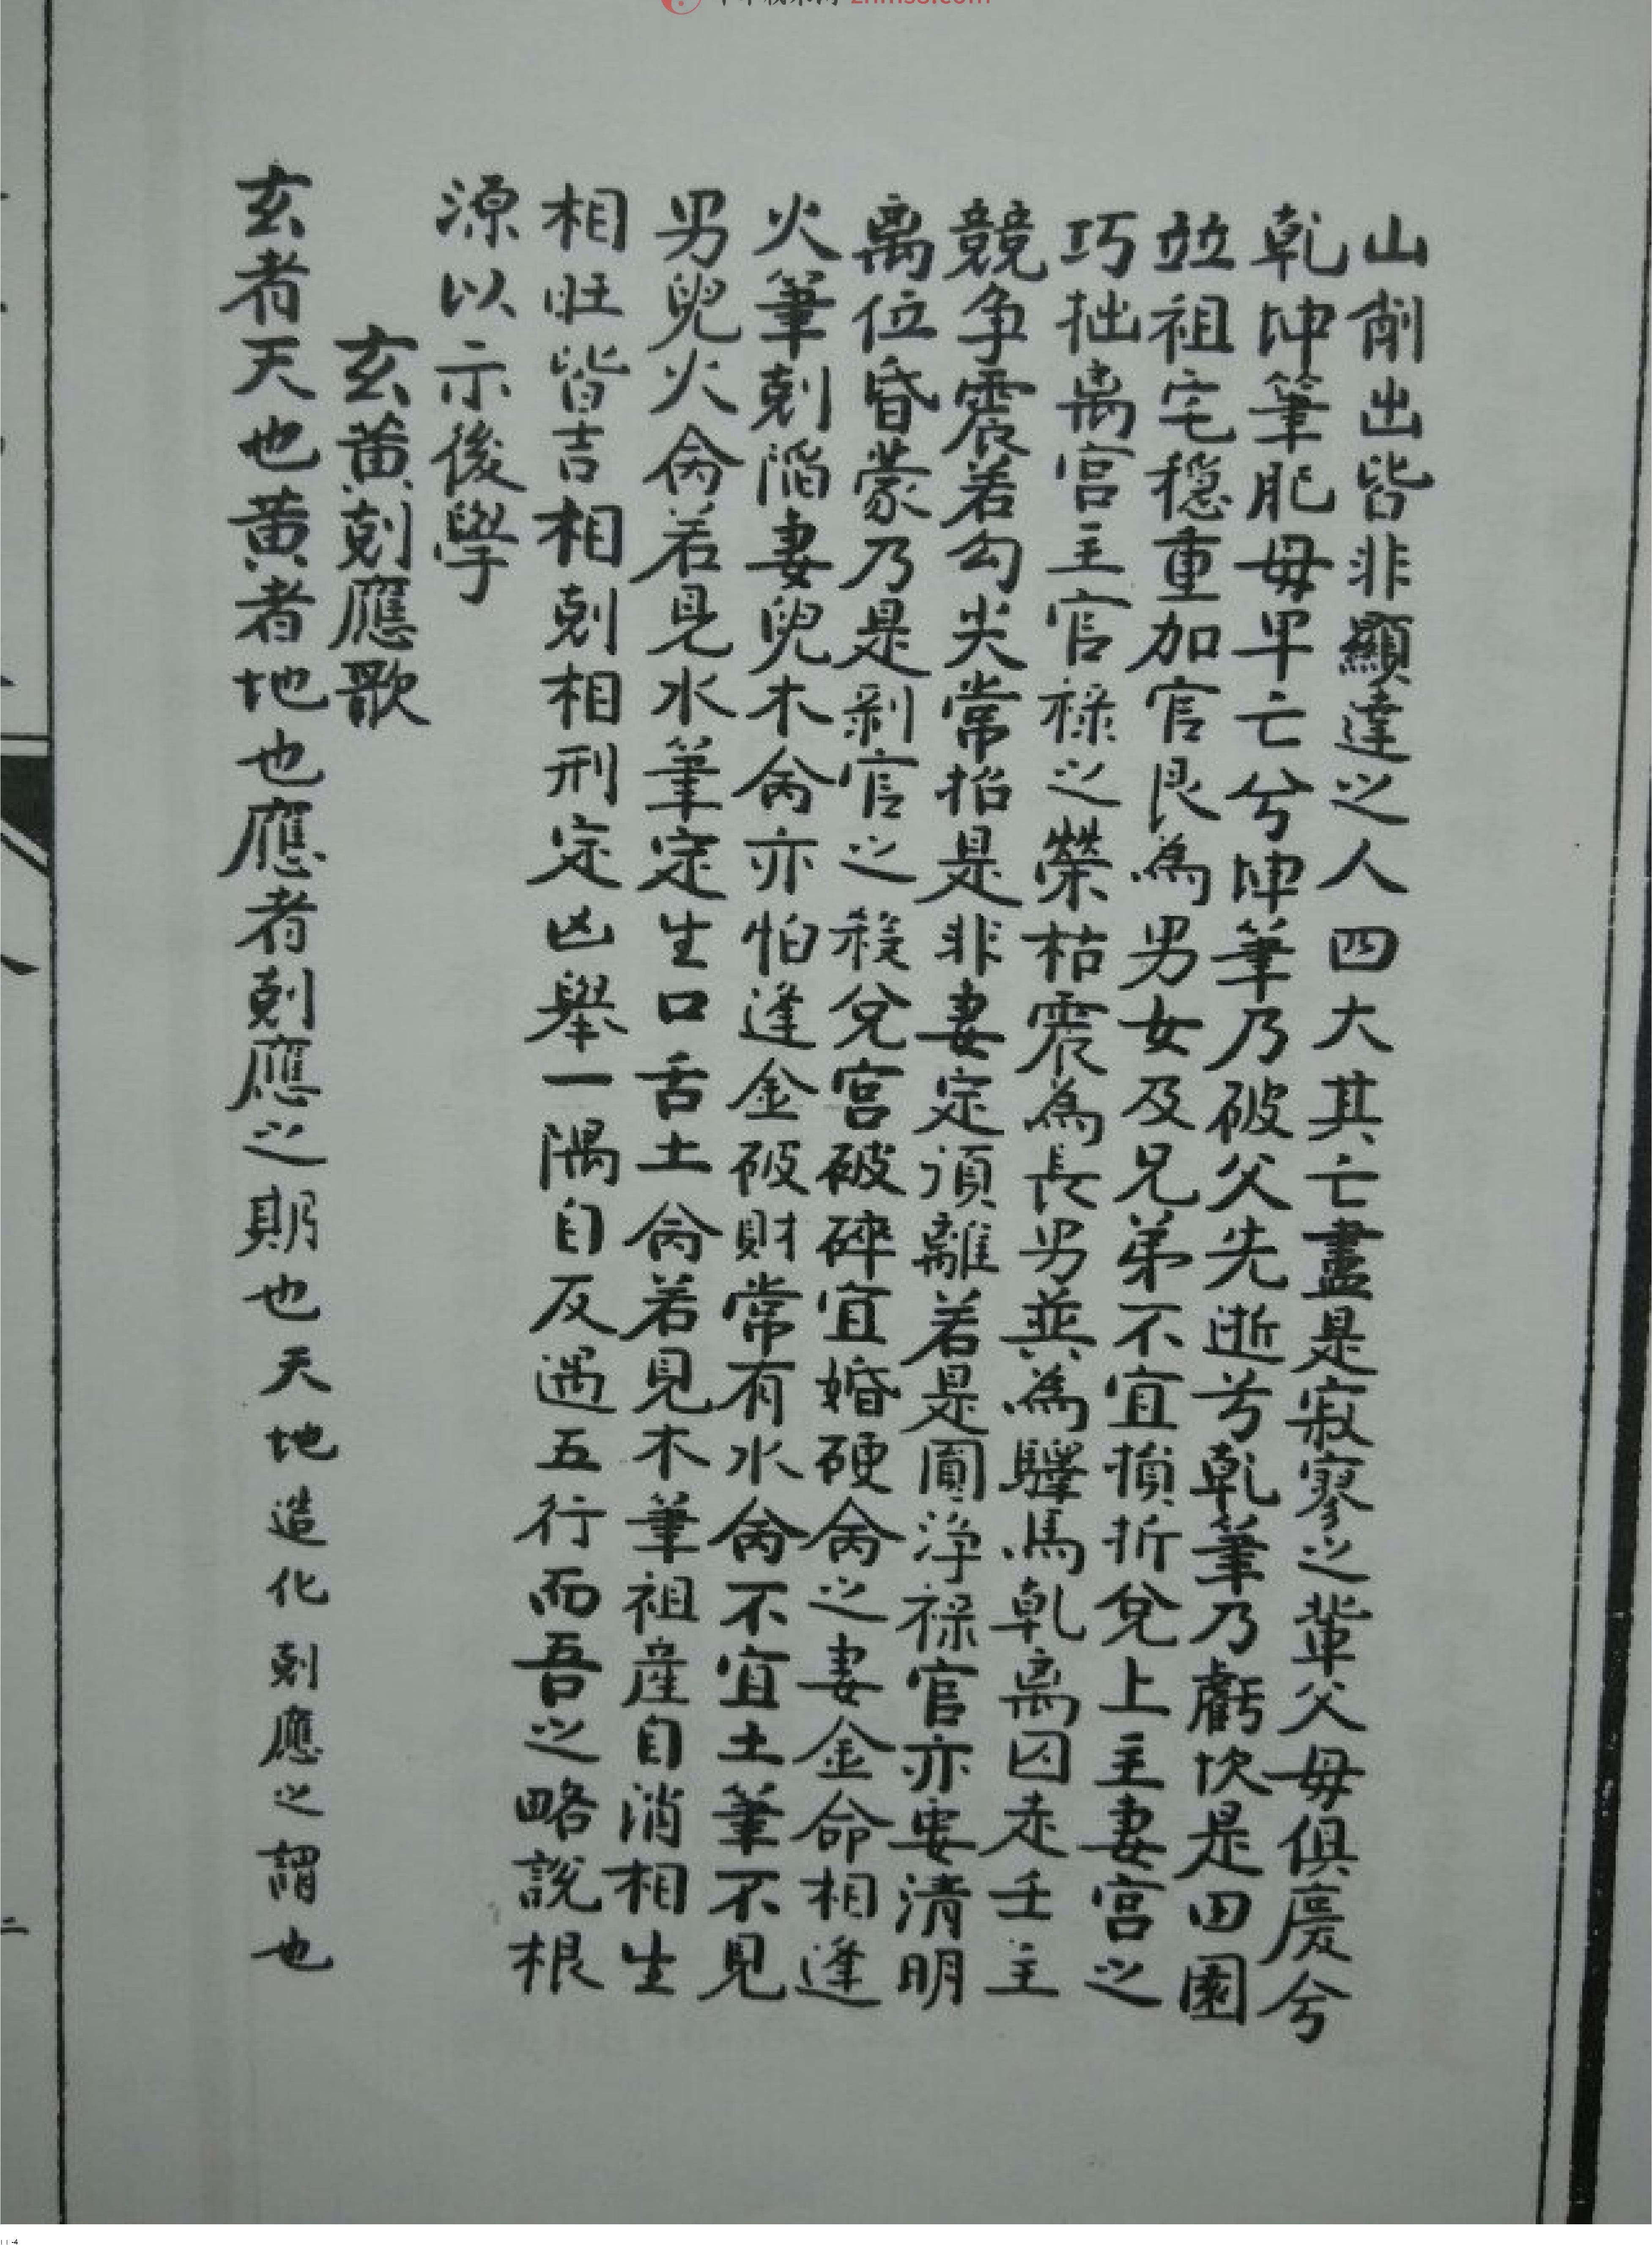 山削出皆非顯達之人四大其亡盡是寂寥之輩父母俱慶兮
乾坤筆肥母早亡兮坤筆乃破父先逝兮乾筆乃虧坎是田園
並祖宅穩重加官艮為男女及兄弟不宜損折兌上主妻宮之
巧拙离宮主官祿之榮枯震為長男並為驛馬乾离囚走壬主
競争震若勾尖常招是非妻定須離若是圓淨祿官亦要清明
离位昏蒙乃是剥官之殺兌宮破碎宜婚硬禽之妻金命相逢
火筆剋陷妻兒木禽亦怕逢金破財常有水禽不宜土筆不見
男兒火禽若見水筆定生口舌土禽若見木筆祖産自消相生
相旺皆吉相剋相刑定凶舉一隅自反遇五行而吾之略說根
源以示後學
玄黄剋應歌
玄者天也黄者地也應者剋應之期也天地造化剋應之謂也